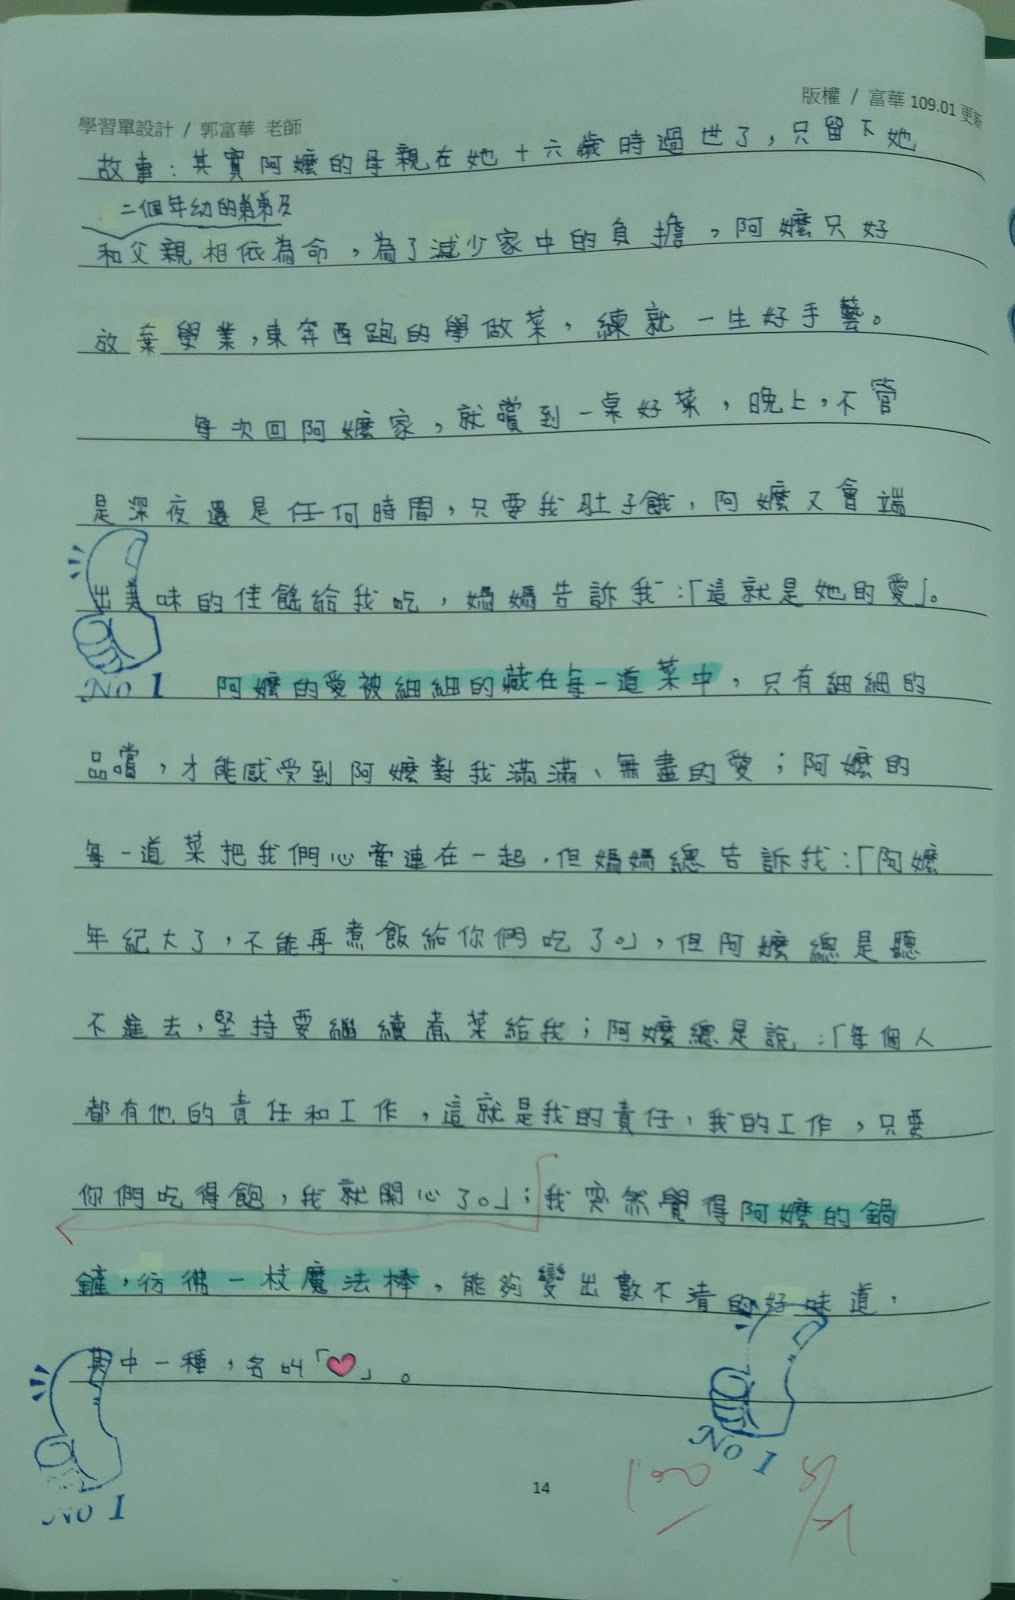 版權 / 富華 109.01 更新
學習單設計 / 郭富華 老師
故事:其實阿嬤的母親在她十六歲時過世了,只留下她
二個年幼的弟弟及
和父親相依為命,為了減少家中的負擔,阿嬤只好
放棄學業,東奔西跑的學做菜,練就一生好手藝。
每次回阿嬤家,就嚐到一桌好菜,晚上,不管
是深夜還是任何時間,只要我肚子餓,阿嬤又會端
出美味的佳餚給我吃,媽媽告訴我:「這就是她的愛」。
No 1
阿嬤的愛被細細的藏在每一道菜中,只有細細的
品嚐,才能感受到阿嬤對我滿滿、無盡的愛;阿嬤的
每一道菜把我們心牽連在一起,但媽媽總告訴我:「阿嬤
年紀大了,不能再煮飯給你們吃了。」,但阿嬤總是聽
不進去,堅持要繼續煮菜給我;阿嬤總是說:「每個人
都有他的責任和工作,這就是我的責任,我的工作,只要
你們吃得飽,我就開心了。」;我突然覺得阿嬤的鍋
鏟,彷彿一枝魔法棒,能夠變出數不清的好味道,
其中一種,名叫「💗」。
No 1
No 1
14
100